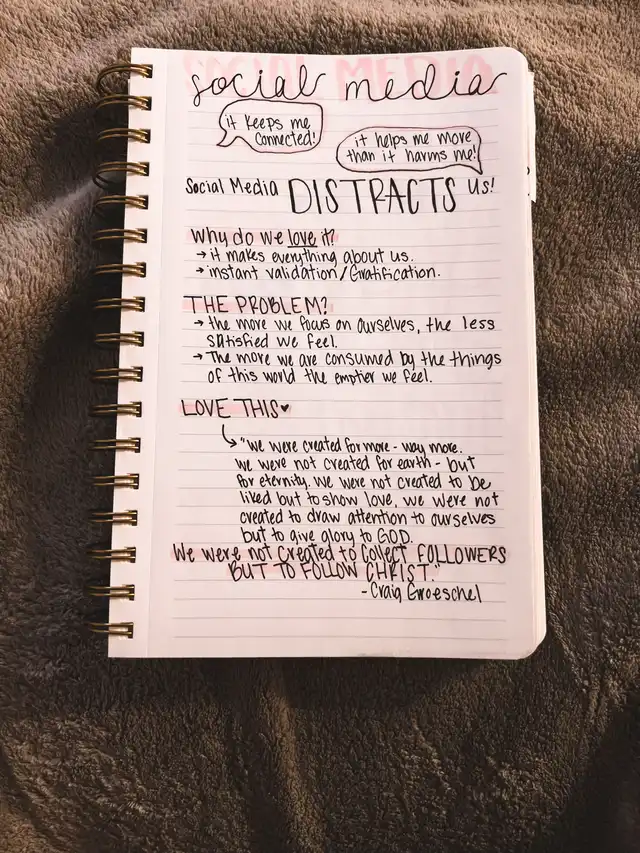 SOCIAL MEDIA
social media
it keeps me
connected!
it helps me more
than it harms me!
Social Media DISTRACTS us!
Why do we love it?
→ it makes everything about us.
→ instant validation/Gratification.
THE PROBLEM?
→ the more we focus on ourselves, the less
satisfied we feel.
→ The more we are consumed by the things
of this world the emptier we feel.
LOVE THIS♥
"We were created for more - way more.
we were not created for earth - but
for eternity. We were not created to be
liked but to show love, we were not
created to draw attention to ourselves
but to give glory to GOD.
We were not Created to Collect FOLLOWERS
BUT TO FOLLOW CHRIST."
- Craig Groeschel